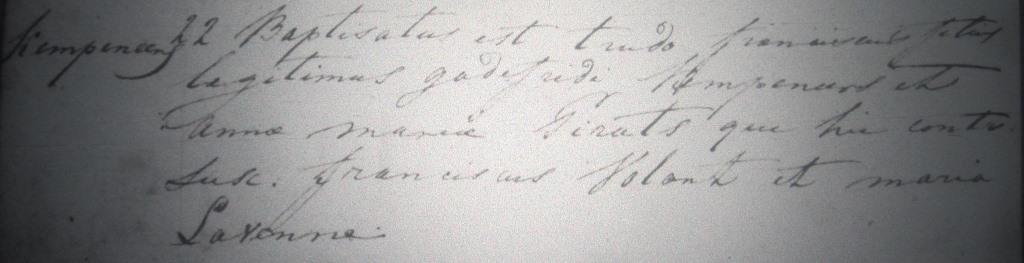 Kempeneers 22 Baptisatus est trudo franciscus filius
legitimus godefridi Kempeneers et
annæ mariæ Girats qui hic contr.
Susc. franciscus Volont et maria
Lavenne.